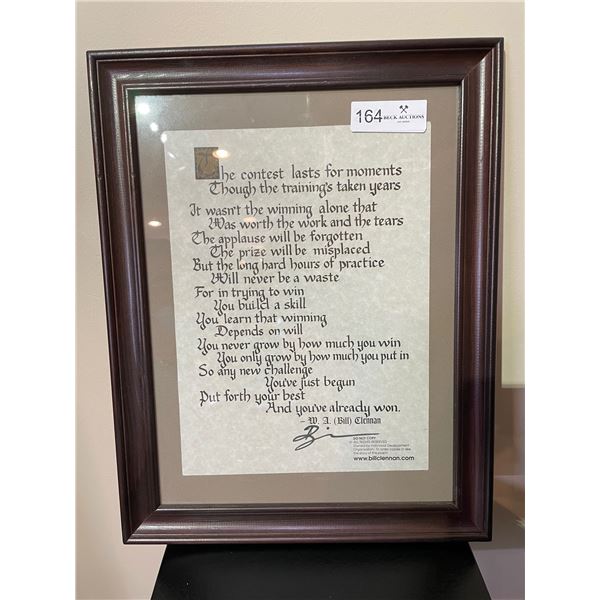 164
BECK AUCTIONS
The contest lasts for moments
Though the training's taken years
It wasn't the winning alone that
Was worth the work and the tears
The applause will be forgotten
The prize will be misplaced
But the long hard hours of practice
Will never be a waste
For in trying to win
You build a skill
You learn that winning
Depends on will
You never grow by how much you win
You only grow by how much you put in
So any new challenge
You've just begun
Put forth your best
And you've already won.
- W. A. (Bill) Clennan
DO NOT COPY
ALL RIGHTS RESERVED
www.billclennan.com